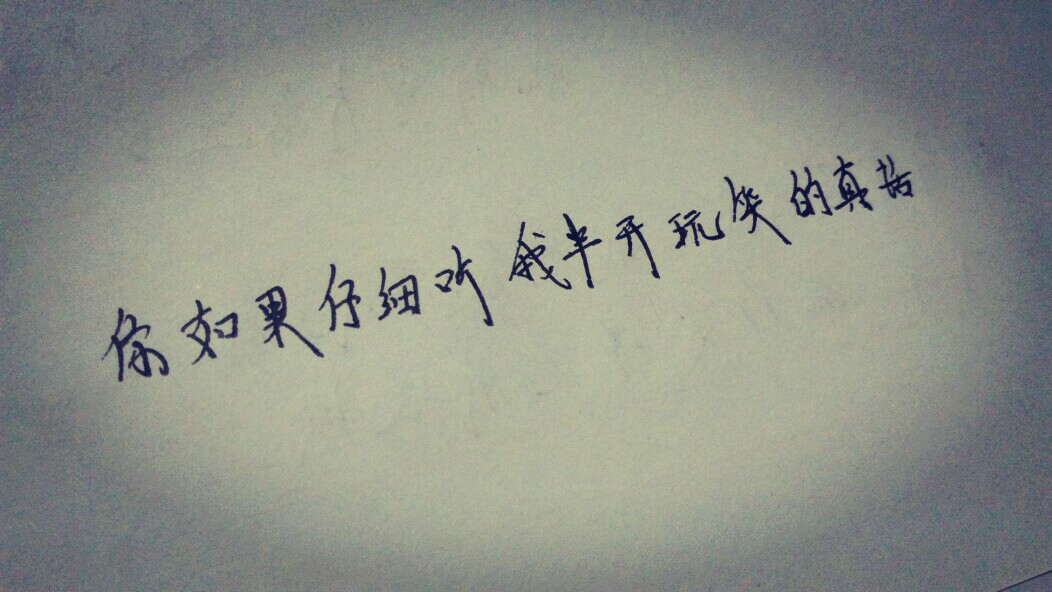 你如果仔细听我半开玩笑的真话